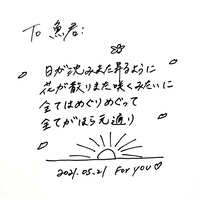 To 魚君:
日が沈みまた昇るように
花が散りまた咲くみたいに
全てはめぐりめぐって
全てがほら元通り
2021.05.21 For you